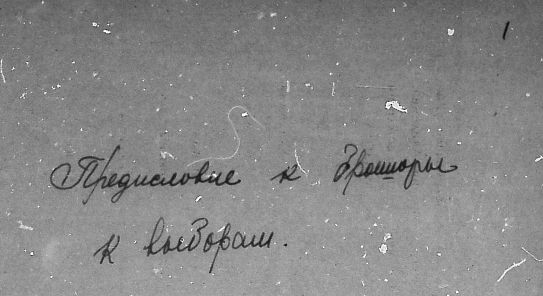 1
Предисловие к брошюры
к выборам.